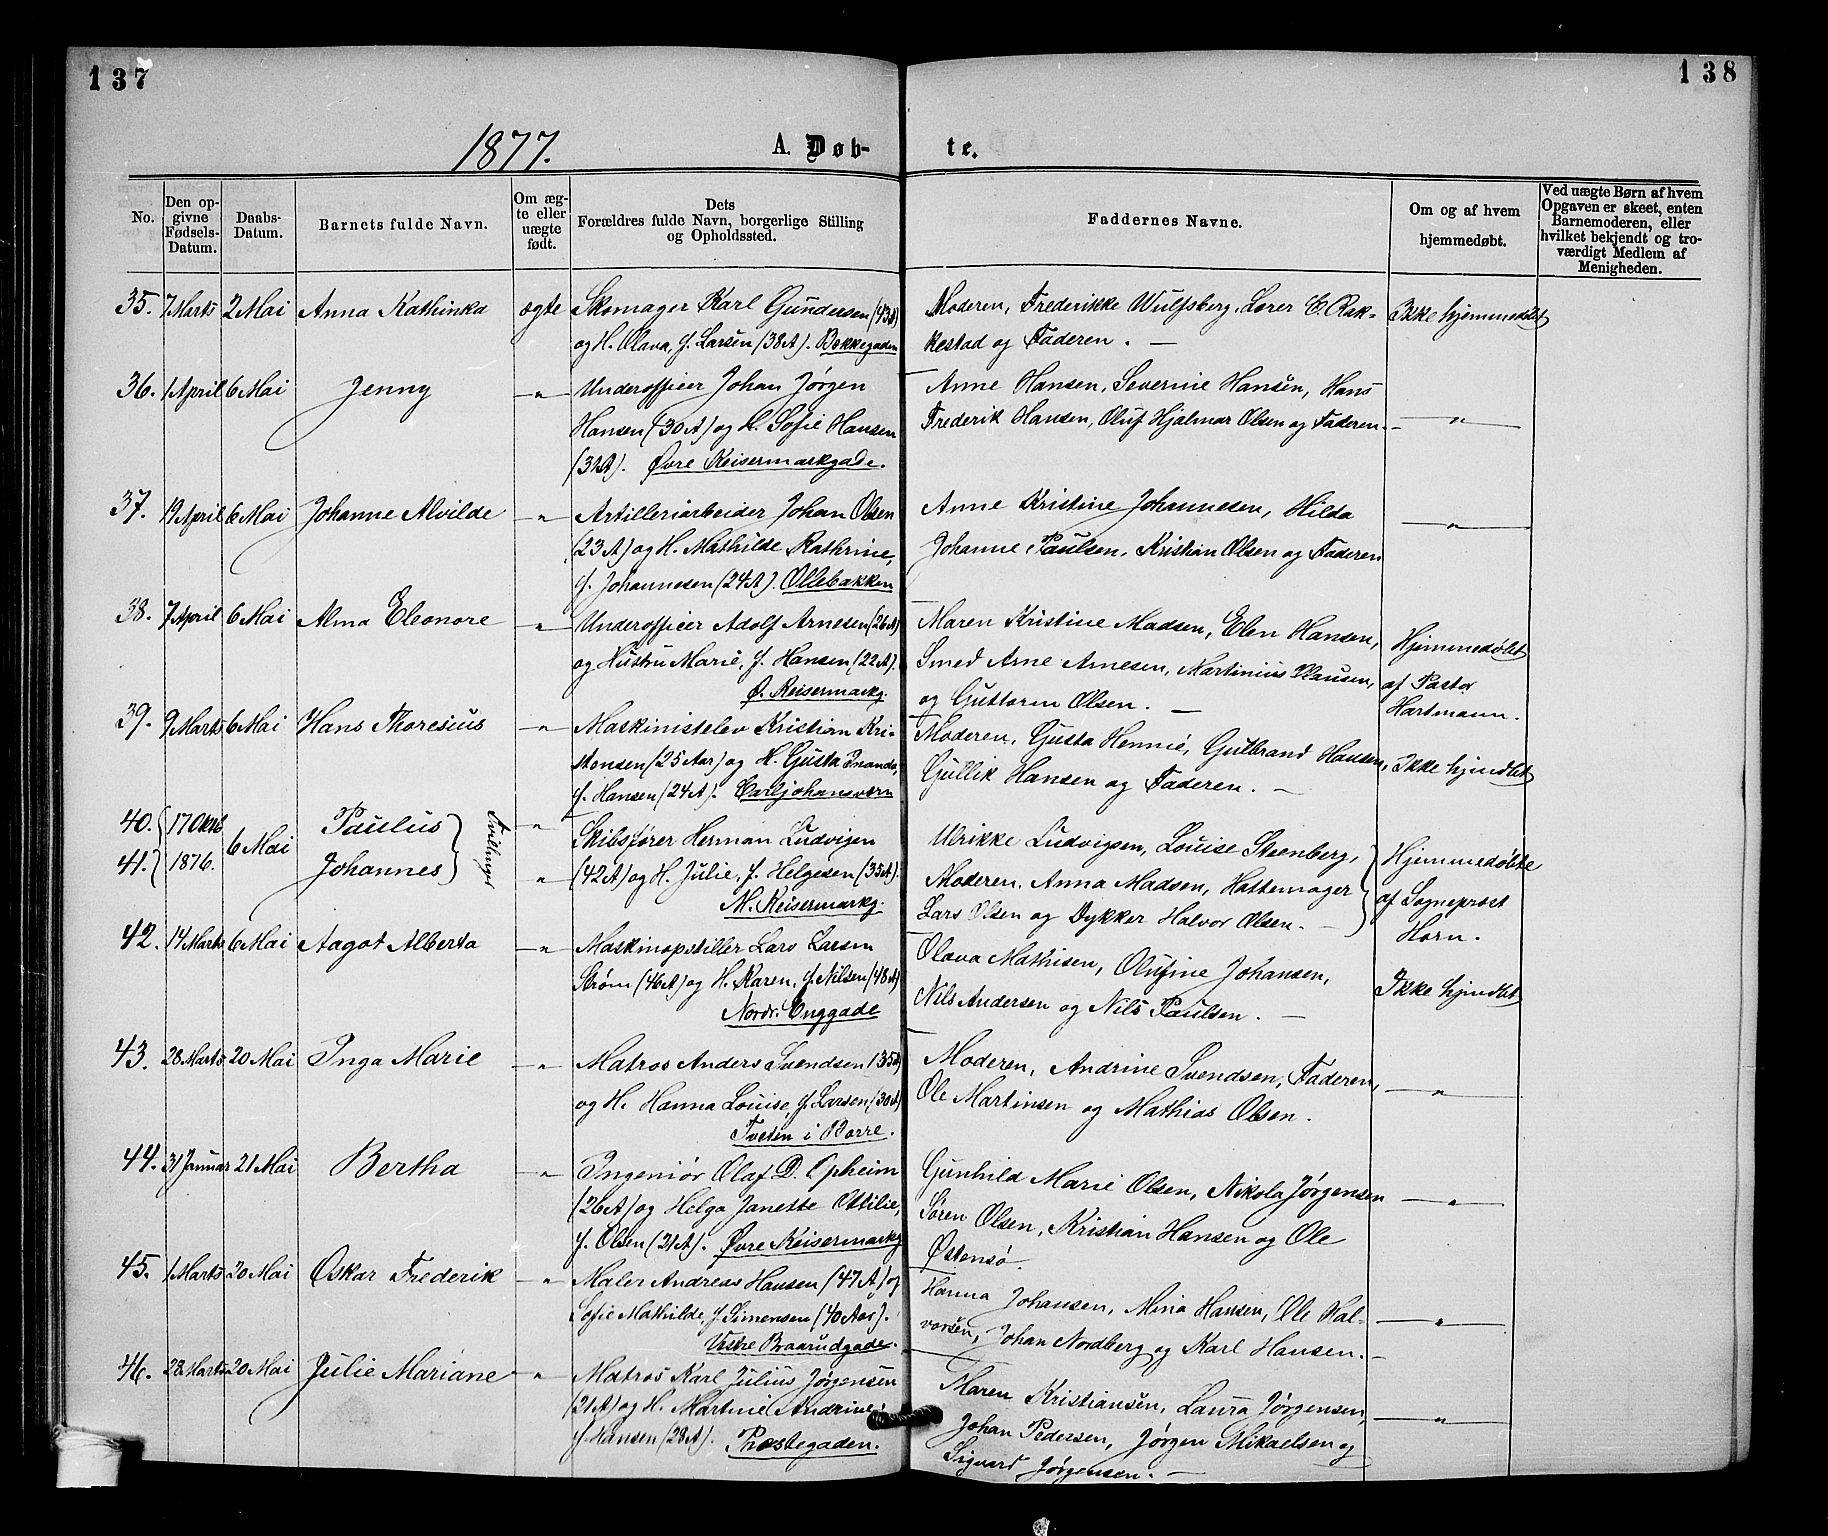 137
138
1877. A. Døb- te.
No.
Den op-
givne
Fødsels-
Datum.
Daabs-
Datum.
Barnets fulde Navn.
Om æg-
te eller
uægte
født.
Dets
Forældres fulde Navn, borgerlige Stilling
og Opholdssted.
Faddernes Navne.
Om og af hvem
hjemmedøbt.
Ved uægte Børn af hvem
Opgaven er skeet, enten
Barnemoderen, eller
hvilket bekjendt og tro-
værdigt Medlem af
Menigheden.
35. 7 Marts 2 Mai Anna Kathinka ægte
Skomager Karl Gundersen (43A)
og H. Olava, f. Larsen (38A). Bekkegaden
Moderen, Frederikke Wulfsberg, Lærer E. Rak-
kestad og Faderen. —
Ikke hjemmedøbt
36. 1 April 6 Mai Jenny — " —
Underofficer Johan Jørgen
Hansen (30A) og H. Sofie Hansen
(32A). Øvre Keisermarkgade.
Anne Hansen, Severine Hansen, Hans
Frederik Hansen, Oluf Hjalmar Olsen og Faderen. —
— " —
37. 19 April 6 Mai Johanne Alvilde — " —
Artilleriarbeider Johan Olsen
(23A) og H. Mathilde Kathrine,
f. Johannesen (24A). Ollebakken
Anne Kristine Johannesen, Hilda
Johanne Paulsen, Kristian Olsen og Faderen
— " —
38. 7 April 6 Mai Alma Eleonore — " —
Underofficer Adolf Arnesen (26A)
og Hustru Marie, f. Hansen (22A).
Ø. Keisermarkg.
Maren Kristine Madsen, Elen Hansen,
Smed Arne Arnesen, Martinius Clausen,
og Guttorm Olsen. —
Hjemmedøbt
af Pastor
Hartmann.
39. 9 Marts 6 Mai Hans Thoresius — " —
Maskinistelev Kristian Kri-
stensen (25 Aar) og H. Gusta Inanda,
f. Hansen (24A). Carljohansværn
Moderen, Gusta Hennie, Gulbrand Hansen,
Gullik Hansen og Faderen. —
Ikke hjmdbt
40. 17 Oktb Paulus — " —
41. 1876. 6 Mai Johannes — " —
Tvillinger
Skibsfører Herman Ludvigsen
(42A) og H. Julie, f. Helgesen (35A).
N. Keisermarkg.
Ulrikke Ludvigsen, Louise Steenberg,
Moderen, Anna Madsen, Hattemager
Lars Olsen og Dykker Halvor Olsen. —
Hjemmedøbte
af Sogneprest
Horn.
42. 14 Marts 6 Mai Aagot Alberta — " —
Maskinopstiller Lars Larsen
Strøm (46A) og H. Karen, f. Nilsen (48A)
Nordr. Enggade
Olava Mathisen, Olufine Johansen,
Nils Andersen og Nils Paulsen. —
Ikke hjmdbt
43. 28 Marts 20 Mai Inga Marie — " —
Matros Anders Svendsen (35A)
og H. Hanna Louise, f. Larsen (30A)
Tveten i Borre.
Moderen, Andrine Svendsen, Faderen,
Ole Martinsen og Mathias Olsen.
— " —
44. 31 Januar 21 Mai Bertha — " —
Ingeniør Olaf D. Opheim
(26A) og Helga Janette Ottilie,
f. Olsen (21A). Øvre Keisermarkg
Gunhild Marie Olsen, Nikola Jørgensen
Søren Olsen, Kristian Hansen og Ole
Østensø.
— " —
45. 1 Marts 20 Mai Oskar Frederik — " —
Maler Andreas Hansen (47A) og
Sofie Mathilde, f. Simensen (40 Aar).
Vestre Braarudgade.
Hanna Johansen, Mina Hansen, Ole Hal-
vorsen, Johan Nordberg og Karl Hansen. —
— " —
46. 28 Marts 20 Mai Julie Mariane — " —
Matros Karl Julius Jørgensen
(21A) og H. Martine Andrine,
f. Hansen (28A). Præstegaden.
Maren Kristiansen, Laura Jørgensen,
Johan Pedersen, Jørgen Mikaelsen og
Sigvard Jørgensen. —
— " —